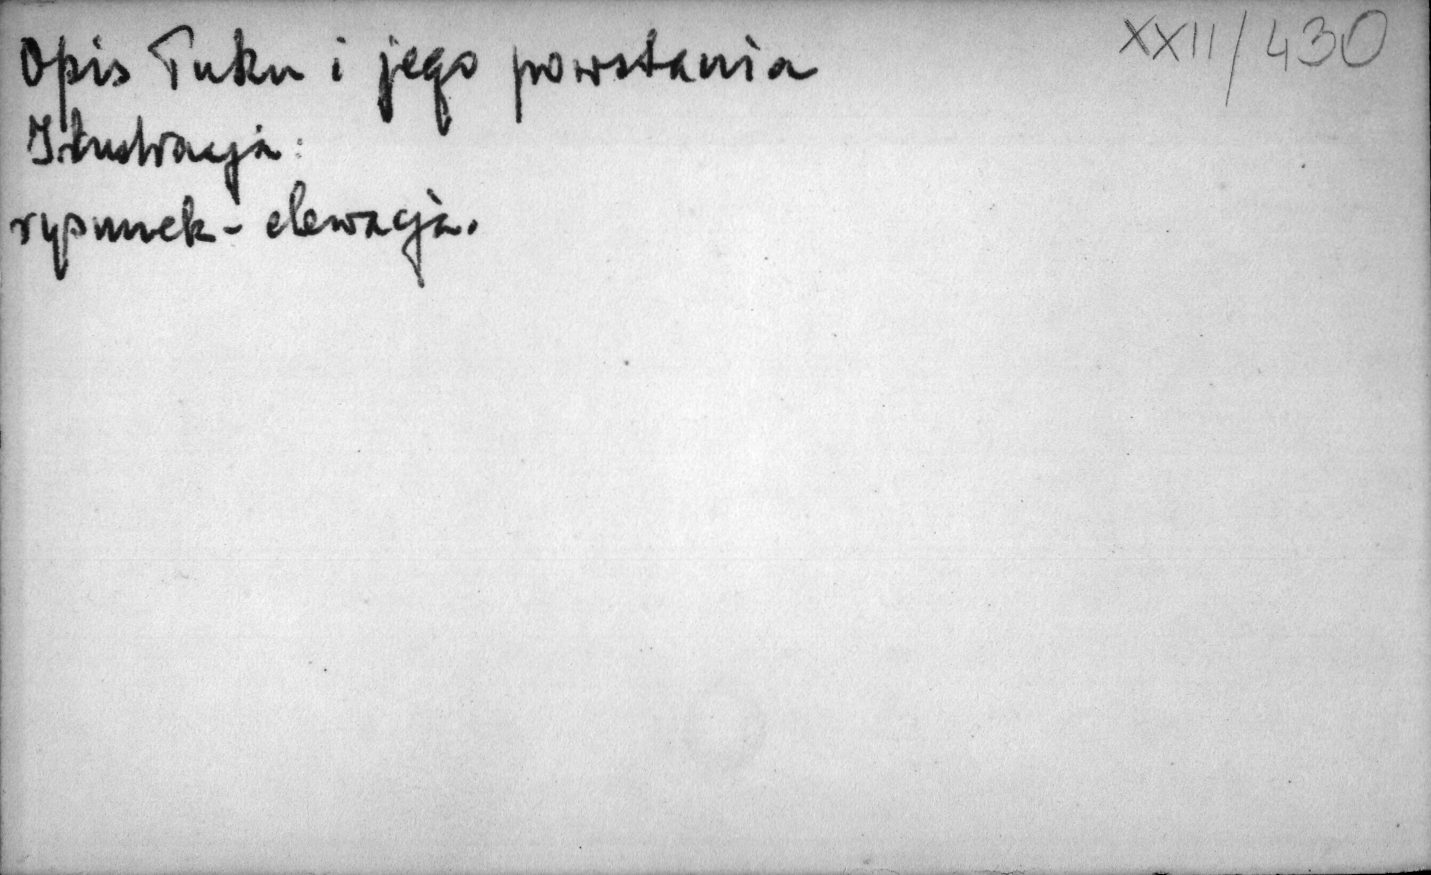 XXII/430
Opis Łuku i jego powstania
Ilustracja:
rysunek - elewacja.